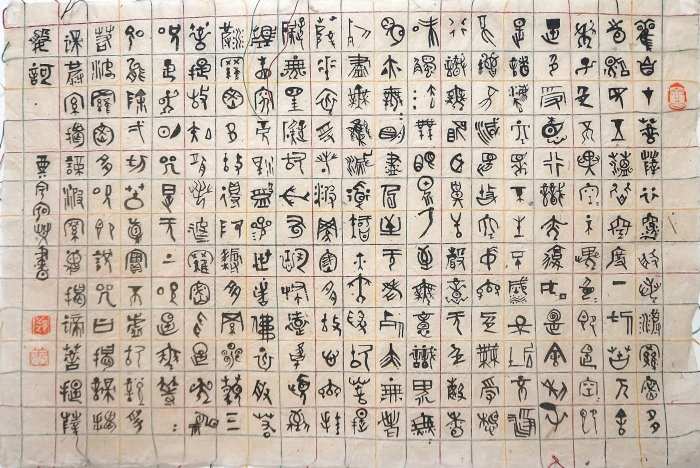 觀自在菩薩行深般若波羅蜜多
時照見五蘊皆空度一切苦厄舍
利子色不異空:不異色:即是空:即
是色受想行識亦復如是舍利子
是諸法空相不生不滅不垢不淨
不增不減是故空中無色無受想
行識無眼耳鼻舌身意無色聲香
味觸法無眼界乃至無意識界無:
明亦無:明盡乃至無老死亦無老
死盡無苦集滅道故菩提
薩埵依般若波羅蜜多故心無罣
礙無罣礙故無有恐怖遠離顛倒
夢想究竟涅槃三世諸佛依般若
波羅蜜多故得阿耨多羅三藐三
菩提故知般若波羅蜜多是大神
咒是大明咒是無上咒是無等:
咒能除一切苦真實不虛故說般
若波羅蜜多咒即說咒曰揭諦揭
諦波羅揭諦波羅僧揭諦菩提薩
婆訶